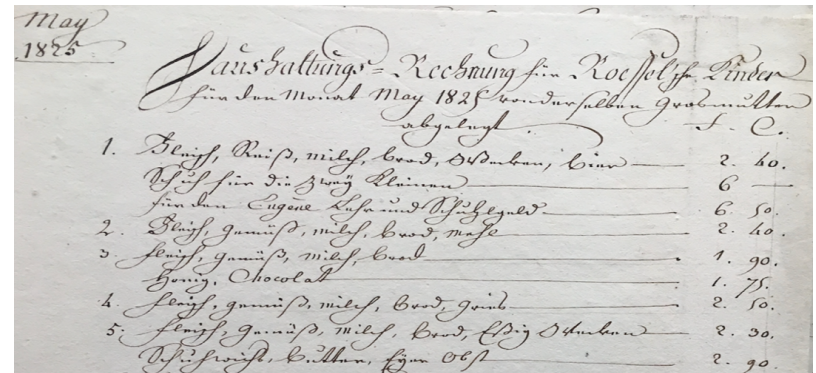 May
1825.
Haushaltungs=Rechnung für Roessel'sche Kinder
für den Monat May 1825 von derselben Grosmutter
abgelegt.
f. C.
1. Fleisch, Reiß, milch, brod, Wecken, bier 2. 40.
Schuh für die zwey Kleinen 6
für den Eugène Lehr und Schuhlgeld 6. 50.
2. Fleisch, gemüß, milch, brod, mehl 2. 40.
3. fleisch, gemüß, milch, brod 1. 90.
Honig, Chocolat 1. 75.
4. fleisch, gemüß, milch, brod, gries 2. 50.
5. fleisch, gemüß, milch, brod, Eßig Wecken 2. 30.
Schuhwichs, butter, Eyer Obst 2. 90.